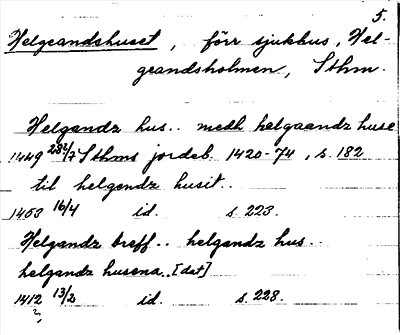 5.
Helgeandshuset, förr sjukhus, Hel-
geandsholmen, Sthm.
Helgandz hus.. medh helgaandz huse
1449 28/7 Sthms jordeb. 1420-74, s. 182
til helgendz husit..
1453 16/4 id. s. 223.
Helgandz breff.. helgandz hus..
helgandz husena. [dat]
1412 13/2 id. s. 228.